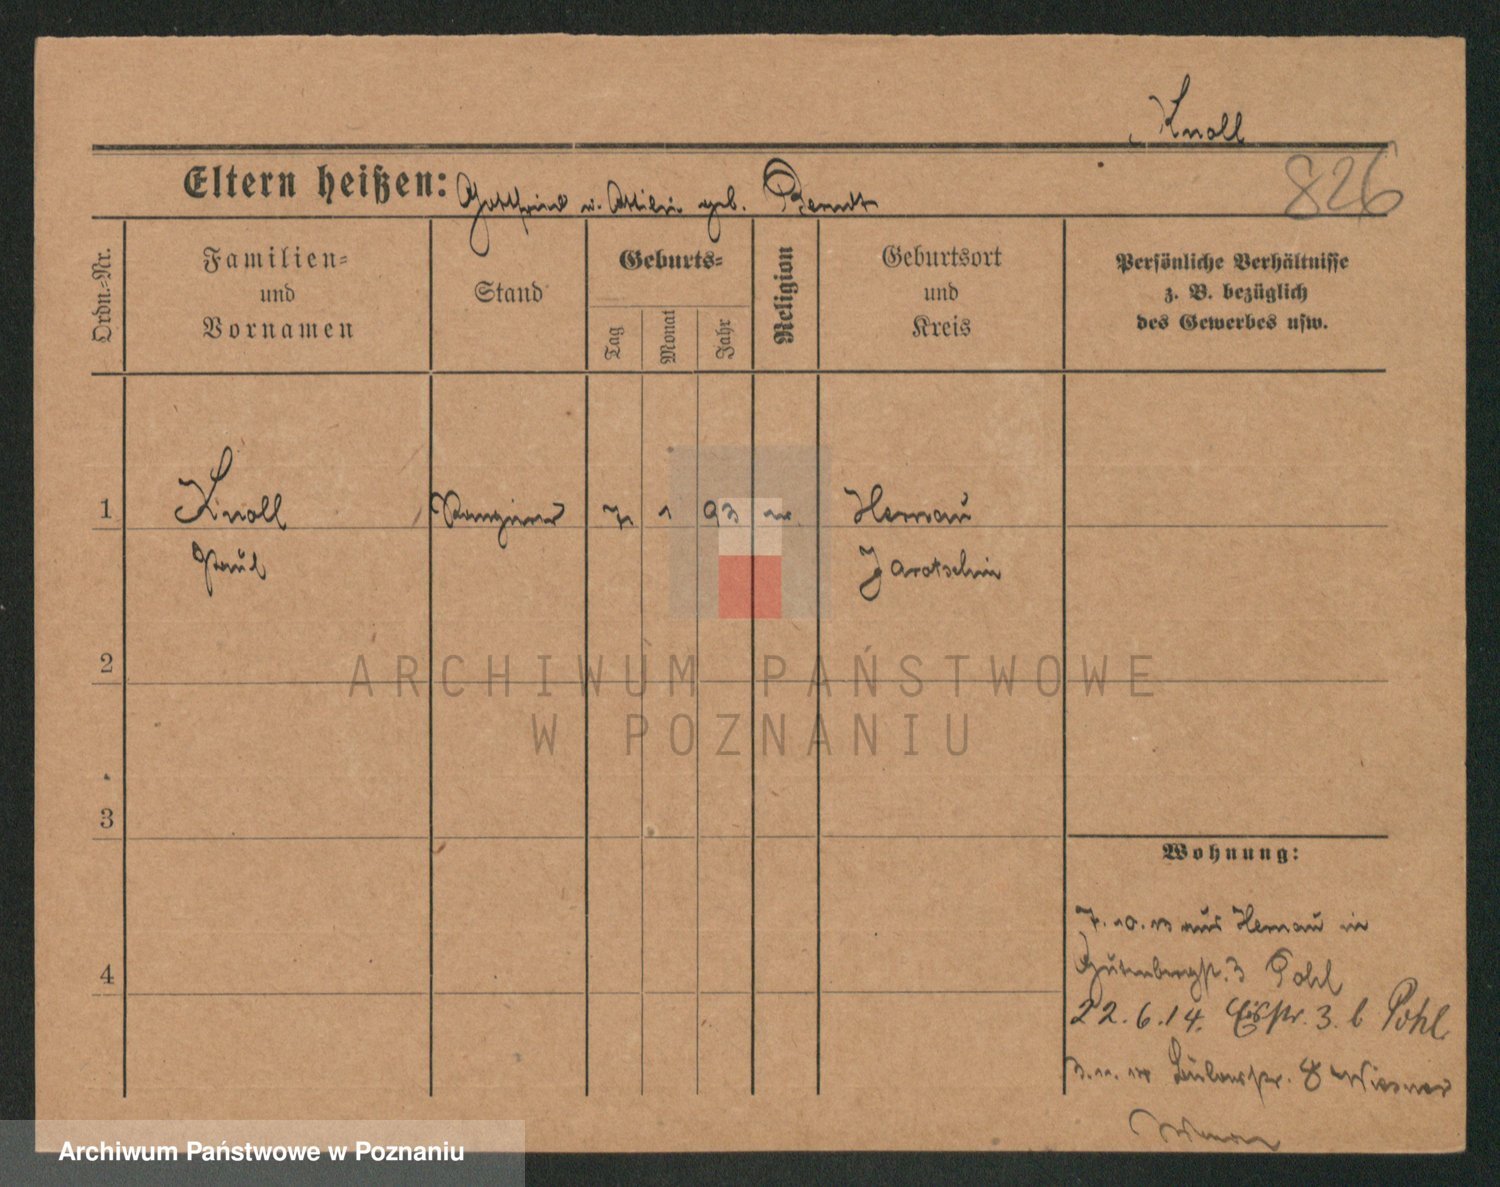 Knoll
826
Eltern heißen: Gottfried u. Ottilie geb. Berndt
Ordn.-Nr.
Familien-
und
Vornamen
Stand
Geburts-
Tag
Monat
Jahr
Religion
Geburtsort
und
Kreis
Persönliche Verhältnisse
z. B. bezüglich
des Gewerbes usw.
1
Knoll
7
1
93
Paul
Jarotschin
2
3
4
Wohnung:
7. 10. 13 aus in
Gutenbergstr. 3 Pohl
22.6.14. 3. b Pohl
Bülowstr. 8 Wiesner
ARCHIWUM PAŃSTWOWE
W POZNANIU
Archiwum Państwowe w Poznaniu